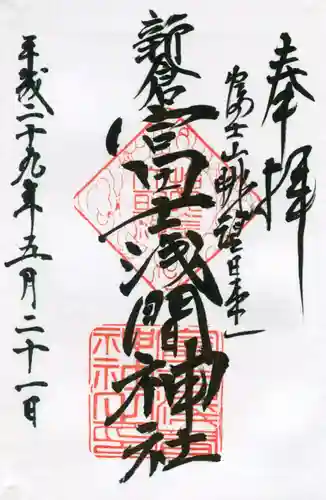 奉拝
富士山眺望日本一
新倉富士浅間神社
平成二十九年五月二十一日